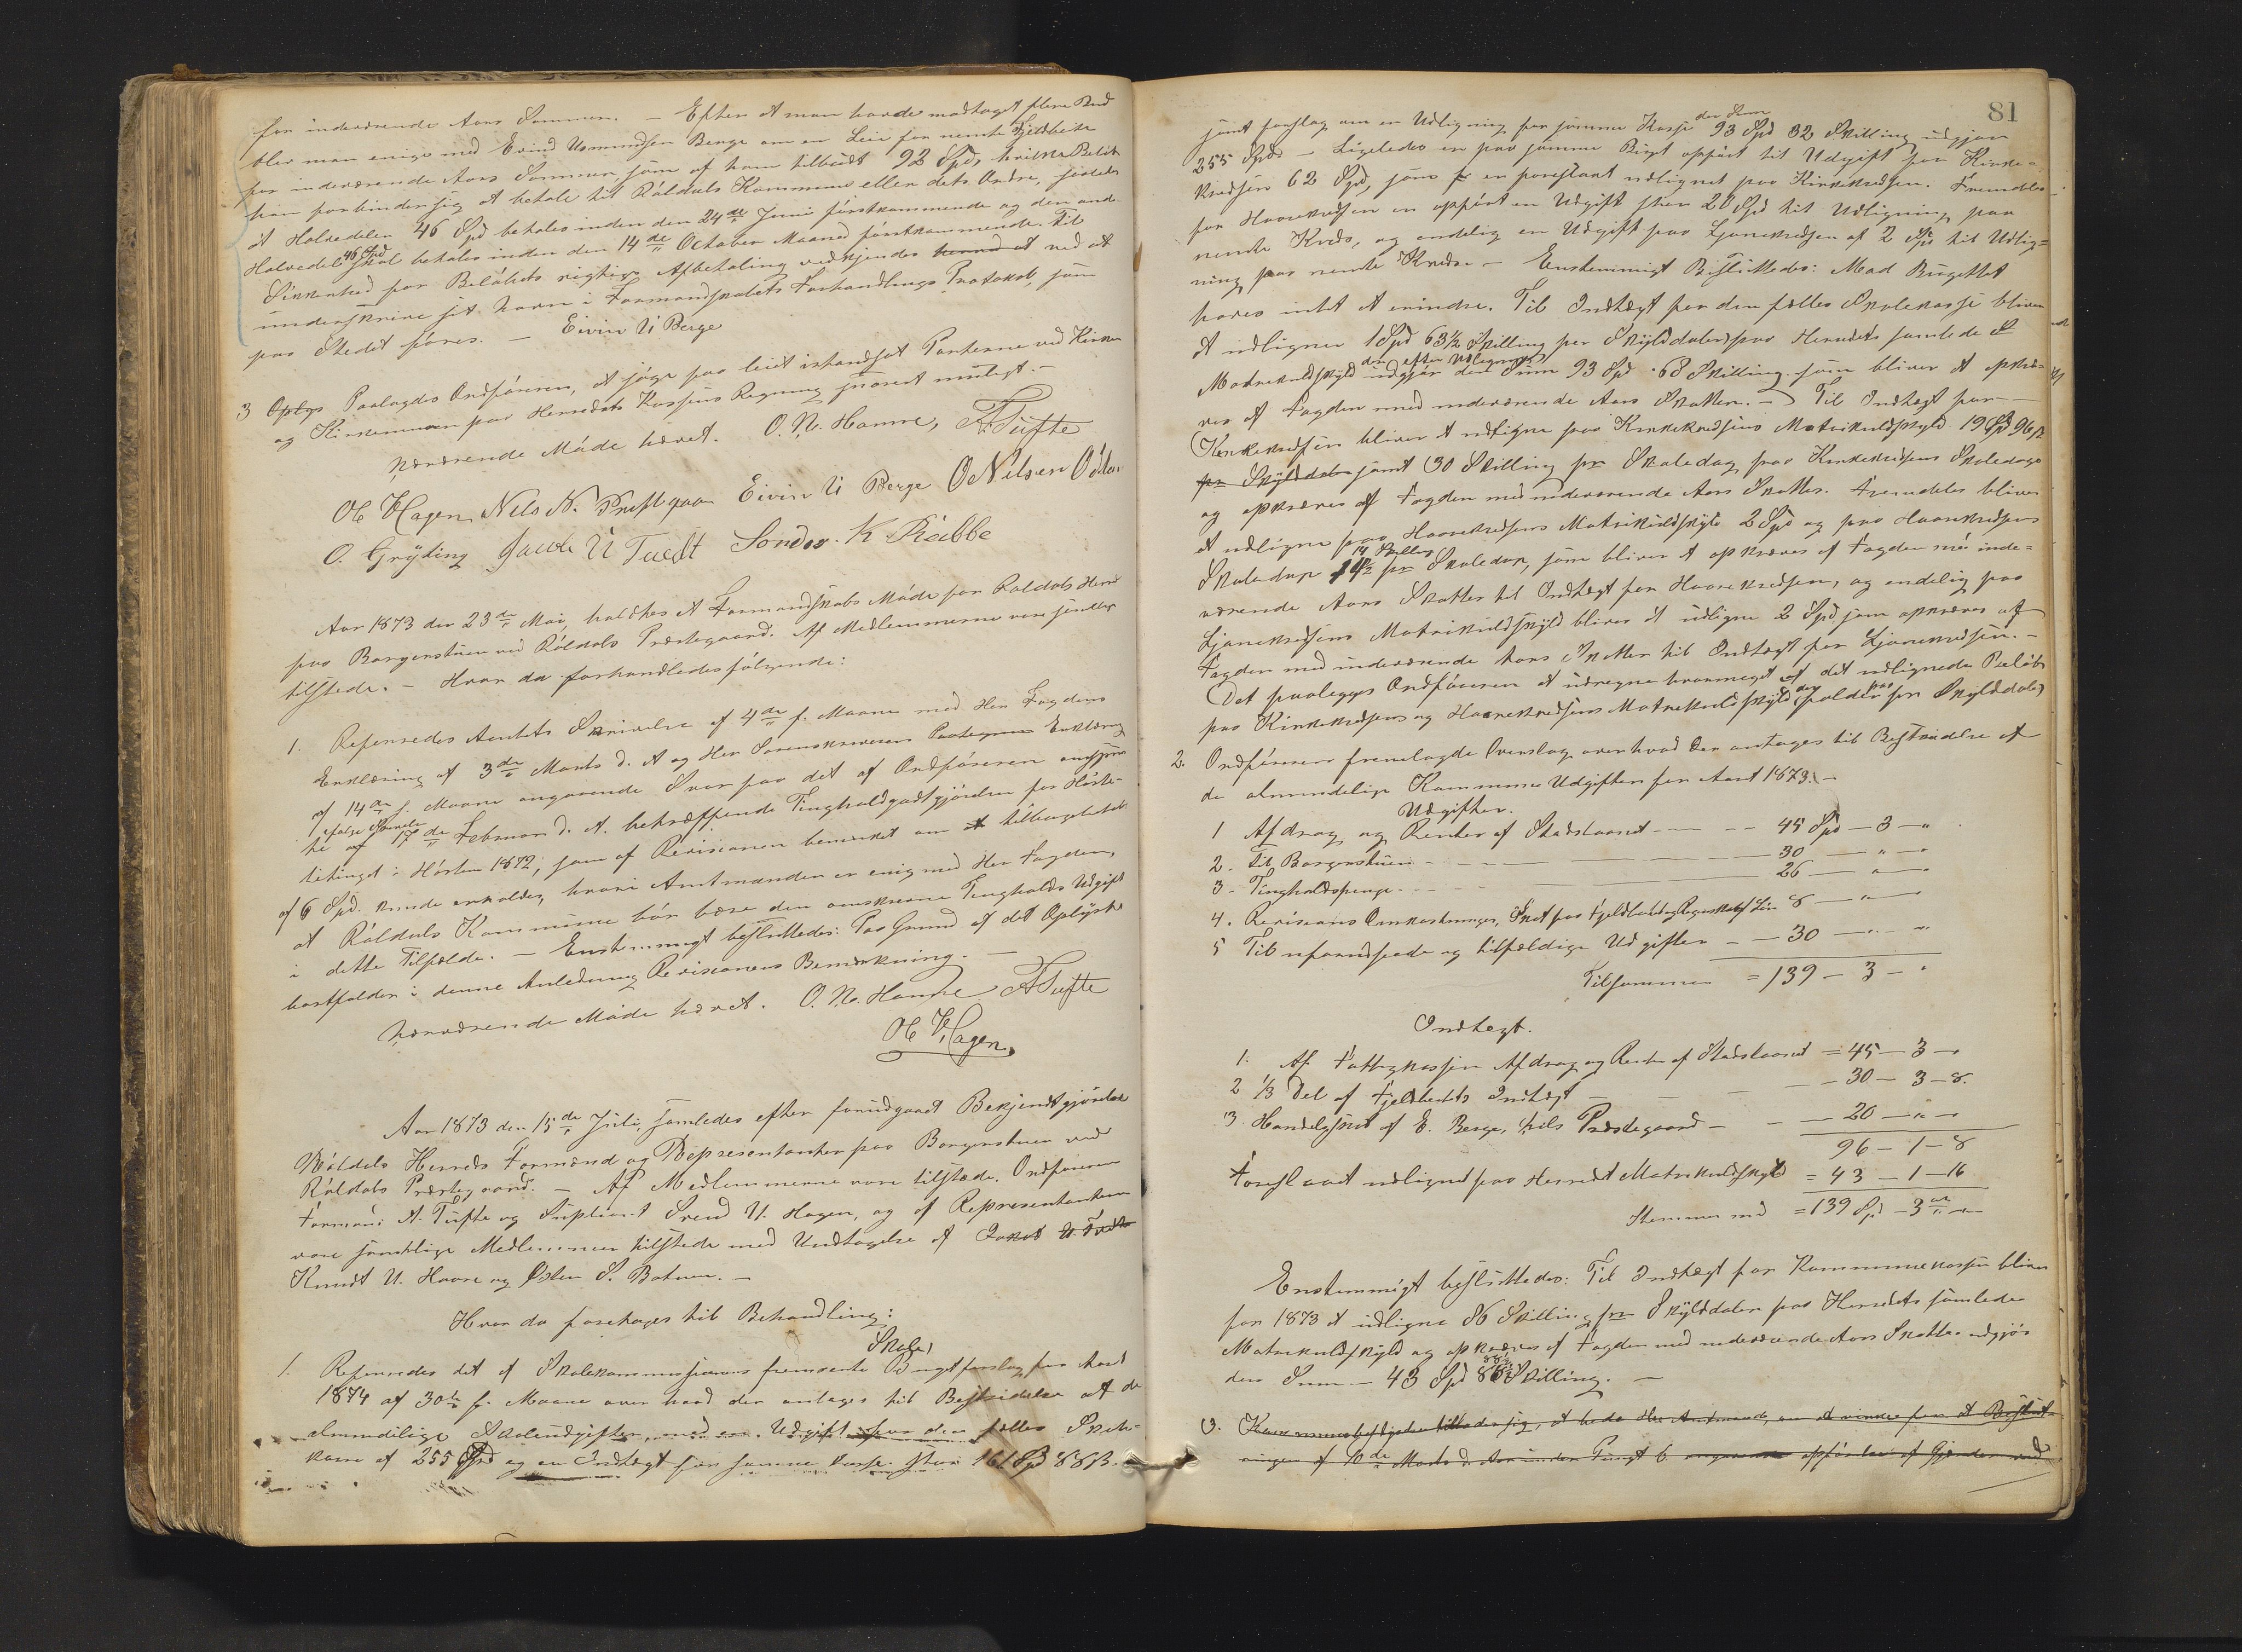 for inderærende Aars Sommer. – Efter at man havde modtaget flere Bud
blev man enige med Eivind Asmundsen Berge om en Leie for nemte Fjeldbeite
for inderærende Aars Sommer, som af ham tilbudt 92 Spd, hvilke Beløb
han forbinder sig at betale til Röldals Kommune eller dets Ordre, saaledes
at Halvedelen 46 Spd betales inden den 24de Juni förstkommende og den anden
Halvedel 46 Spd skal betales inden den 14de October Maaned förstkommende. Til
Sikkerhed for Belöbets rigtige Afbetaling vedkjendes ved at
underskrive sit Navn i Formandskabets Forhandlings Protokol, som
paa Stedet föres. – Eivin U Berge
3 Oplys Paalagdes Ordföreren, at söge paa beiet istandsat Porterne ved Kirken
og Kirkemuren paa Herredets Kasses Regning snarest muligt. –
Nærværende Möde hævet. O. N. Hamre, A. Tufte
Ole V Hagen Nils N. Prestgaar Eivin U Berge O Nilsen
O. Gryting Jacob U Tuedt Sondov K Rabbe
Aar 1873 den 23de Mai, holdtes et Formandskabs Möde for Röldals Herred
paa Borgerstuen ved Röldals Præstegaard. Af Medlemmerne vare samtlige
tilstede. – Hvor da forhandledes fölgende:
1. Refereredes Amtets Skrivelse af 4de f. Maane med Her Fogdens
Erklæring af 3de Marts d. A og Her Sorenskriverens Erklæring
af 14de f. Maane angaaende Svar paa det af Ordföreren
ifölge Skrivelse
af 17de Februar d. A. betræffende Tingholdsgodtgjörelse for Höste-
tinget i Hösten 1872, som af Revisionen bemærket om at tilbagebetale
af 6 Spd. kunde erholdes, hvori Amtmanden er enig med Her Fogden,
at Röldals Kommune bör bære den omskrevne Tingholds Udgift
i dette Tilfælde. – Enstemmigt besluttedes: Paa Grund af det Oplyste
bortfalder i denne Anledning Revisionens Bemærkning. –
Nærværende Möde hævet. O. N. Hamre A Tufte
Ole V Hagen
Aar 1873 den 15de Juli, samledes efter forudgaaet Bekjendtgjörelse
Röldals Herreds Formænd og Repræsentanter paa Borgerstuen ved
Röldals Præstegaard. – Af Medlemmerne vare tilstæde. Ordföreren
Formænd A. Tufte og Supliant Svend U. Hagen, og af Repræsentanterne
vare samtlige Medlemmer tilstede med Undtagelse af
Knudt U. Haare og Østen S. Botnen. –
Hvor da foretages til Behandling:
Skole
1. Refereredes det af Skolekommissionens fremsente Budgetforslag for Aaret
1874 af 30te f. Maane over hvad der antages til Bestridelse af de
almindelige Skoleudgifter, med en Udgift for den fælles Skole-
kasse af 255 Spd og en Indtægt for samme Kasse stor 161 Spd 88 ß.
81
samt forslag om en Udligning for samme Kasse der Stor 93 Spd 32 Skilling udgjör
255 Spd – Ligeledes er paa samme Bugt opfört til Udgift for Kirke-
kredsen 62 Spd, som er foreslaaet udlignet paa Kirkekredsen. Fremdeles
for Haarekredsen er opfört en Udgift stor 20 Spd til Udligning paa
nemte Kreds, og endelig en Udgift paa Ljonekredsen af 2 Spd til Udlig-
ning paa nemte Kreds – Enstemmigt Besluttedes: Mod Bugettet
haves intet at erindre. Til Indtægt for den fælles Skolekasse bliver
at udligne 1 Spd 63½ Skilling per Skylddaler paa Herredets samlede
Matrikulskyld der efter Udlegningen udgjör den Sum 93 Spd 68 Skilling som bliver at opkræ-
ves af Fogden med inderærende Aars Skatter. – Til Indtægt for
Kirkekredsen bliver at udligne paa Kirkekredsens Matrikulskyld 19 Spd 96 ß
pr Skylddaler samt 30 Skilling pr Skoledag paa Kirkekredsens Skoledage
og opkræves af Fogden med inderærende Aars Skatter. Fremdeles bliver
at udligne paa Haarekredsens Matrikulskyld 2 Spd og paa Haarekredsens
Skoledage 14 Skilling pr Skoledag, som bliver at opkræves af Fogden med inde-
rærende Aars Skatter til Indtægt for Haarekredsen, og endelig paa
Ljonekredsens Matrikulskyld bliver at udligne 2 Spd som opkræves af
Fogden med inderærende Aars Skatter til Indtægt for Ljonekredsen. –
Det paalægges Ordföreren at udregne hvormeget af det udlignede Belöb
paa Kirkekredsens og Haarekredsens Matrikulskyld der falder paa pr Skylddaler
2. Ordföreren fremlagde Overslag over hvad der antages til Bestridelse af
de almindelige Kommunes Udgifter for Aaret 1873. –
Udgifter.
1 Afdrag og Renter af Stadslaanet – 45 Spd – 3 – "
2. Til Borgerstuen – 30 – " – "
3 – Tingholdspenge – 26 – " – "
4. Revisions Omkostninger, Skat paa Fjeldbeite og Regnskabs Lön 8 – " – "
5 Til uforudseede og tilfældige Udgifter – 30 – " – "
Tilsammen = 139 – 3 – "
Indtægt.
1. Af Fattigkassen Afdrag og Rente af Stadslaanet = 45 – 3 – "
2 ⅓ Del af Fjeldbeits Indtægt – 30 – 3 – 8.
3 Handelsskat af E. Berge, Nils Præstegaard – 20 – " – "
96 – 1 – 8
Foreslaaet udlignet paa Herredet Matrikulskyld = 43 – 1 – 16
Stemmer med = 139 Spd – 3 – "
Enstemmigt besluttedes: Til Indtægt for Kommunekassen bliver
for 1873 at udligne 86 Skilling pr Skylddaler paa Herredets samlede
Matrikulskyld og opkræves af Fogden med inderærende Aars Skatter udgjör
den Sum – 43 Spd 88½ Skilling. –